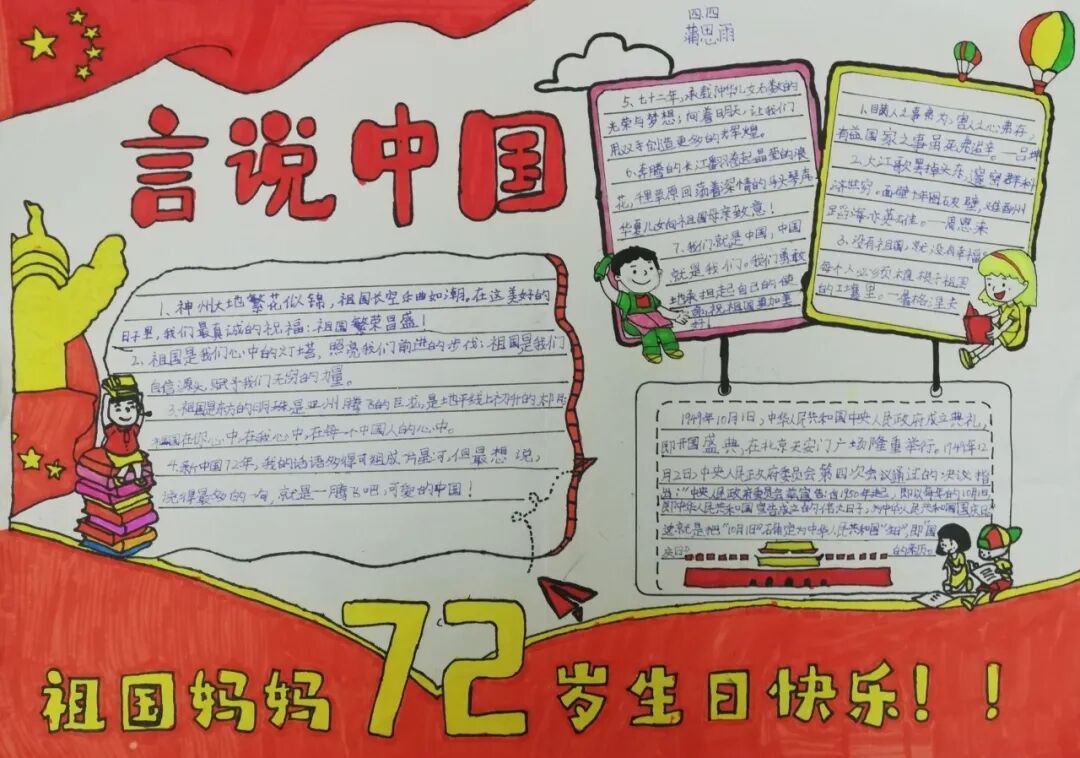 四.四
蒲思雨
言说中国
1、神州大地繁花似锦，祖国长空乐曲如潮。在这美好的
日子里，我们最真诚的祝福：祖国繁荣昌盛！
2、祖国是我们心中的灯塔，照亮我们前进的步伐；祖国是我们
自信源头，赋予我们无穷的力量。
3、祖国是东方的明珠是亚洲腾飞的巨龙，是地平线上初升的
祖国在你心中，在我心中，在每一个中国人的心中。
4.新中国72年，我的话语多得可组成，但最想说，
说得最多的一句，就是一腾飞吧，可爱的中国！
5、七十二年，承载中华儿女无数的
光荣与梦想；向着明天，让我们
用双手创造更多的辉煌。
6、奔腾的长江翻卷起晶莹的浪
花，千里草原回荡着深情的马头琴，
华夏儿女向祖国母亲致意！
7、我们就是中国，中国
就是我们。我们勇敢
地承担起自己的使
命，祝祖国更加美
好！
1.
有益国家之事虽死弗避。—吕坤
2、大江歌罢掉头东，邃密群科
济世穷。面壁十年图破壁，难酬蹈
海亦英雄。—周恩来
3、没有祖国，就没有幸福。
每个人必须植根于祖国
的土壤里。—屠格涅夫
1949年10月1日，中华人民共和国中央人民政府成立典礼，
即开国盛典，在北京天安门广场隆重举行。1949年12
月2日，中央人民政府委员会第四次会议通过的决议指
出："中央人民政府委员会宣告：自1950年起，即以每年的10月1日
即中华人民共和国宣告成立的伟大日子，为中华人民共和国国庆日
这就是把"10月1日"确定为中华人民共和国"生日"，即"国
庆日"的来历。
祖国妈妈72岁生日快乐！！